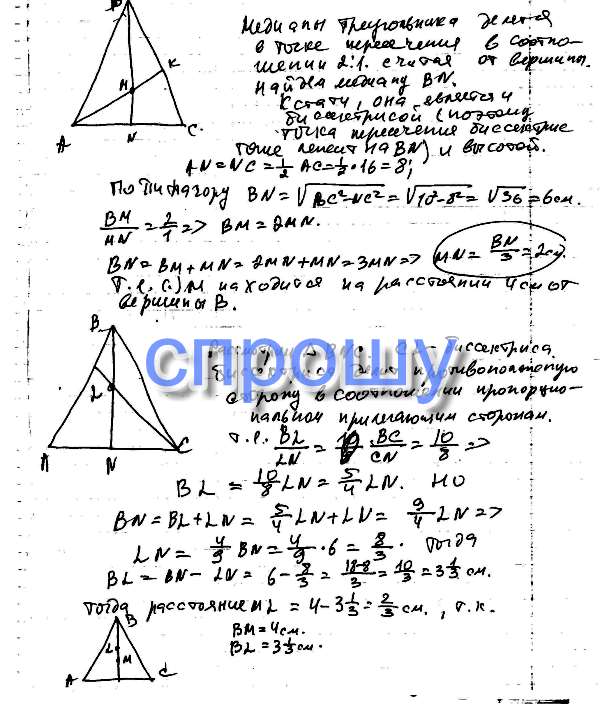 B
K
M
A
N
C.
Медианы треугольника делятся
в точке пересечения в соотно-
шении 2:1. считая от вершины.
Найдём медиану BN.
Кстати, она является и
биссектрисой (поэтому
точка пересечения биссектрис
тоже лежит на BN) и высотой.
AN=NC=1/2 AC=1/2·16=8;
По Пифагору BN=√BC²-NC² = √10²-8² = √36 =6см.
BM/MN = 2/1 => BM=2MN.
BN=BM+MN=2MN+MN=3MN=> MN= BN/3 =2см.
Т.е. M находится на расстоянии 4см от
вершины B.
B
L
A
N
C
спрошу
биссектриса
делит противоположную
сторону в соотношении пропорцио-
нальном прилегающим сторонам.
т.е. BL/LN = BC/CN = 10/8 =>
BL = 10/8 LN = 5/4 LN. но
BN=BL+LN= 5/4 LN+LN= 9/4 LN =>
LN = 4/9 BN= 4/9 ·6 = 8/3. тогда
BL= BN- LN= 6- 8/3 = 18-8/3 = 10/3 = 3 1/3 см.
Тогда расстояние ML = 4-3 1/3 = 2/3 см., т.к.
BM=4см.
BL=3 1/3 см.
B
L
M
A
C